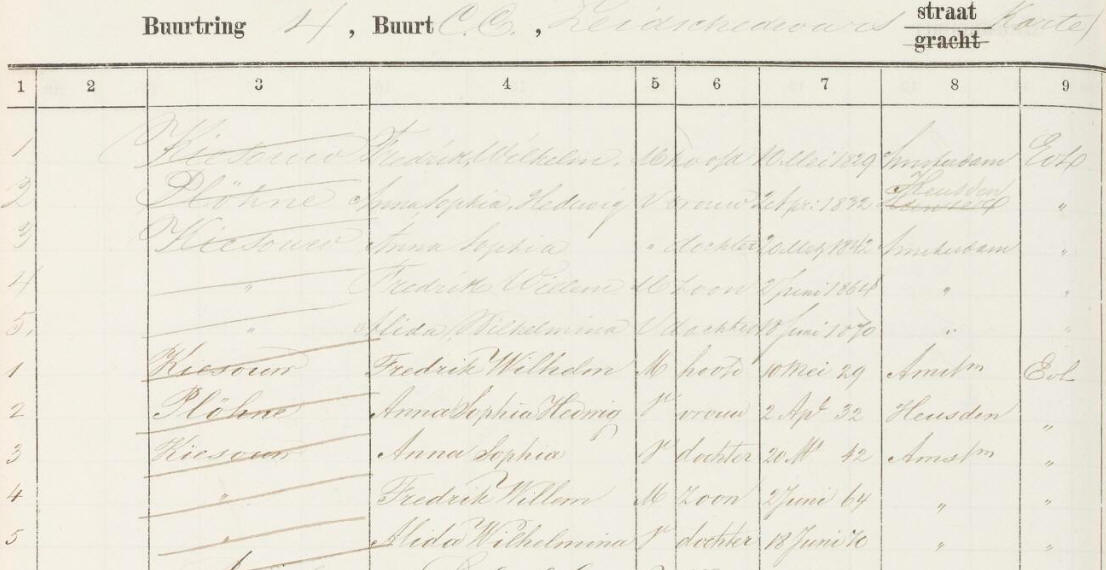 Buurtring 4, Buurt C.C., Leidschedwars straat Korte)
gracht
1 2 3 4 5 6 7 8 9
1 Kiesouw Fredrik Wilhelm M hoofd 10 Mei 1829 Amsterdam EvL
Heusden
2 Plöhne Anna Sophia Hedwig V vrouw 2 Apr: 1832 "
3 Kiesouw Anna Sophia " dochter 20 1842 Amsterdam "
4 " Fredrik Willem M zoon 2 Juni 1864 " "
5. " Alida Wilhelmina V dochter 18 Juni 1870 " "
1 Kiesouw Fredrik Wilhelm M hoofd 10 Mei 29 Amstm EvL
2 Plöhne Anna Sophia Hedwig V vrouw 2 Apl 32 Heusden "
3 Kiesouw Anna Sophia V dochter 20 Mt 42 Amstm "
4 " Fredrik Willem M zoon 2 Juni 64 " "
5 " Alida Wilhelmina V dochter 18 Juni 70 " "